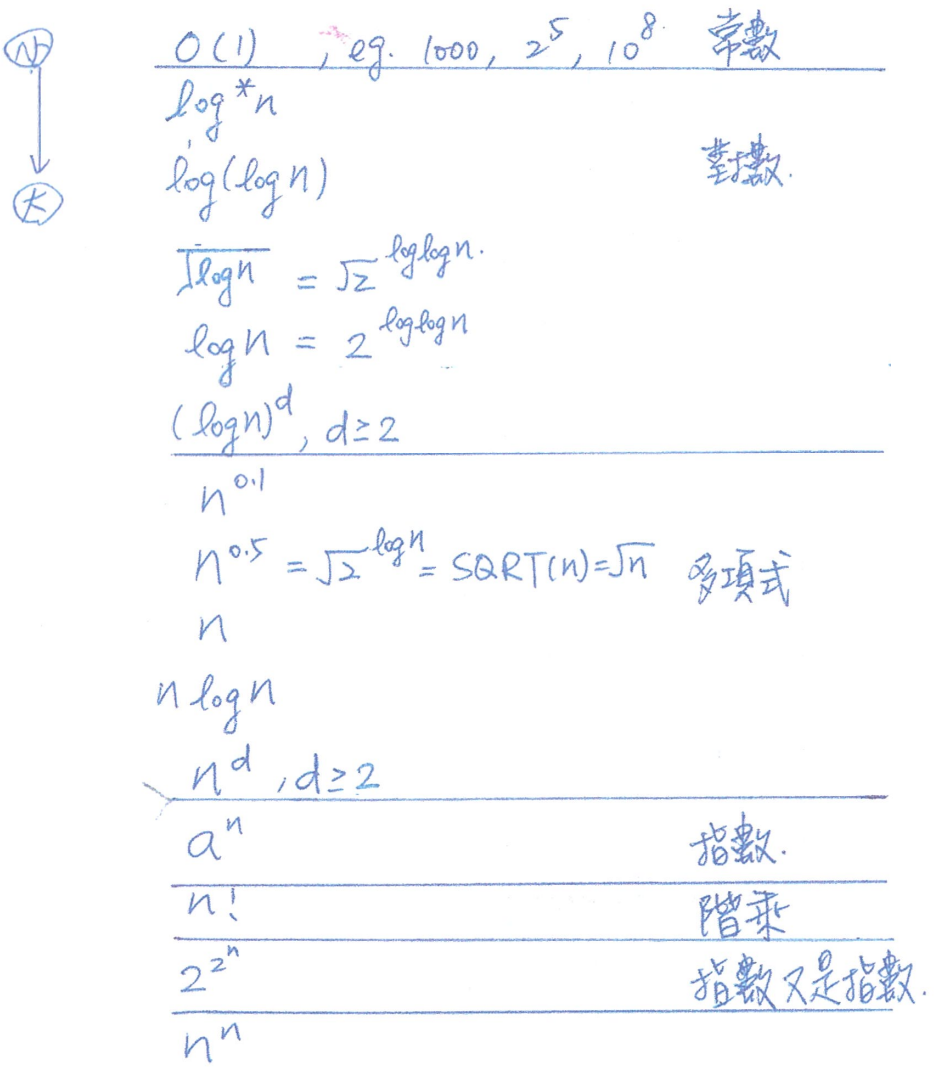 小
大
O(1) , eg. 1000, 2^5, 10^8. 常數
log*n
log(log n) 對數.
√log n = √2^loglog n.
log n = 2^loglog n
(log n)^d, d≥2
n^0.1
n^0.5 = √2^log n = SQRT(n)=√n 多項式
n
n log n
n^d , d≥2
a^n 指數.
n! 階乘
2^2^n 指數又是指數.
n^n